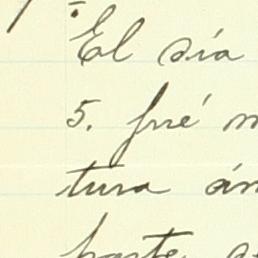 El día
5. fué
tura
parte